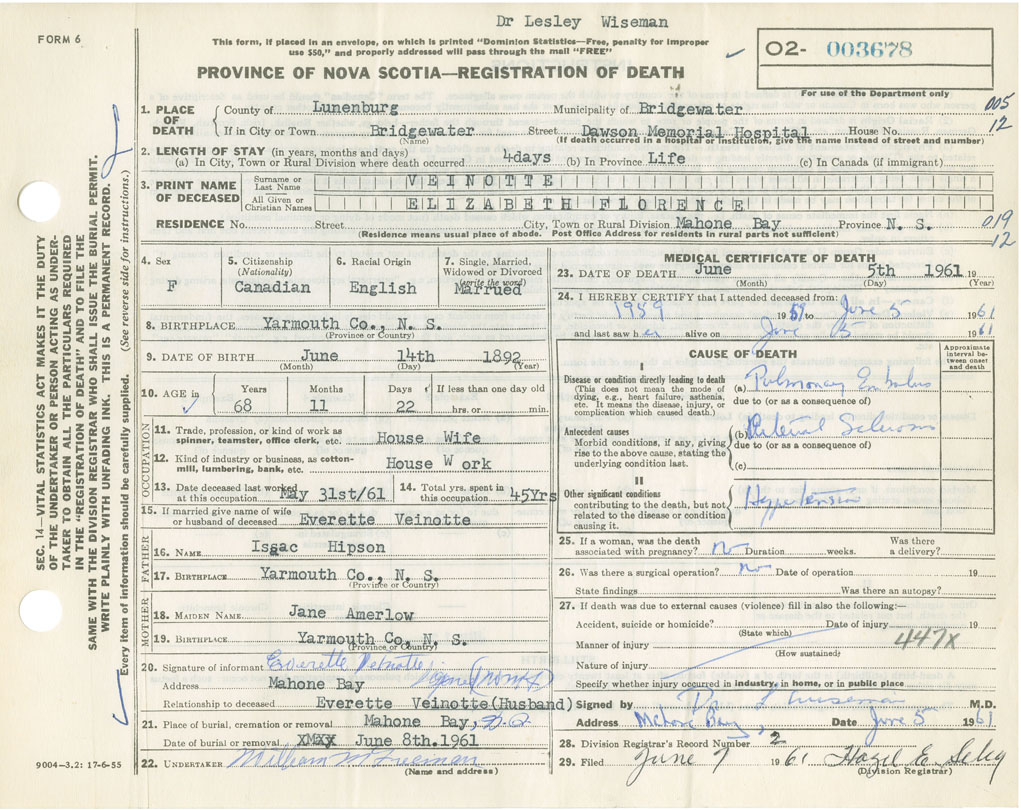 Dr Lesley Wiseman
FORM 6
This form, if placed in an envelope, on which is printed "Dominion Statistics—Free, penalty for improper
use $50," and properly addressed will pass through the mail "FREE"
02- 003678
For use of the Department only
PROVINCE OF NOVA SCOTIA—REGISTRATION OF DEATH
005
12
1. PLACE OF DEATH County of Lunenburg Municipality of Bridgewater
If in City or Town Bridgewater Street Dawson Memorial Hospital House No.
(Name) (If death occurred in a hospital or institution, give the name instead of street and number)
2. LENGTH OF STAY (in years, months and days)
(a) In City, Town or Rural Division where death occurred 4days (b) In Province Life (c) In Canada (if immigrant)
3. PRINT NAME OF DECEASED
Surname or Last Name VEINOTTE
All Given or Christian Names ELIZABETH FLORENCE
RESIDENCE No. Street City, Town or Rural Division Mahone Bay Province N. S.
(Residence means usual place of abode. Post Office Address for residents in rural parts not sufficient)
019
12
4. Sex F
5. Citizenship (Nationality) Canadian
6. Racial Origin English
7. Single, Married, Widowed or Divorced (write the word) Marrued
8. BIRTHPLACE Yarmouth Co., N. S.
(Province or Country)
9. DATE OF BIRTH June 14th 1892
(Month) (Day) (Year)
10. AGE in Years 68 Months 11 Days 22 If less than one day old hrs. or min.
OCCUPATION
11. Trade, profession, or kind of work as spinner, teamster, office clerk, etc. House Wife
12. Kind of industry or business, as cotton-mill, lumbering, bank, etc. House W ork
13. Date deceased last worked at this occupation May 31st/61
14. Total yrs. spent in this occupation 45Yrs
15. If married give name of wife or husband of deceased Everette Veinotte
FATHER
16. NAME Issac Hipson
17. BIRTHPLACE Yarmouth Co., N. S.
(Province or Country)
MOTHER
18. MAIDEN NAME Jane Amerlow
19. BIRTHPLACE Yarmouth Co, N. S.
(Province or Country)
20. Signature of informant Everette Veinotte
Address Mahone Bay
Relationship to deceased Everette Veinotte(Husband)
21. Place of burial, cremation or removal Mahone Bay,
Date of burial or removal XMXX June 8th.1961
22. UNDERTAKER William M Freeman
(Name and address)
MEDICAL CERTIFICATE OF DEATH
23. DATE OF DEATH June 5th 1961 19
(Month) (Day) (Year)
24. I HEREBY CERTIFY that I attended deceased from:
1959 19 59 to June 5 1961
and last saw her alive on June 5 1961
CAUSE OF DEATH
Approximate interval between onset and death
I
Disease or condition directly leading to death
(This does not mean the mode of dying, e.g., heart failure, asthenia, etc. It means the disease, injury, or complication which caused death.)
(a) Pulmonary Embolus
due to (or as a consequence of)
Antecedent causes
Morbid conditions, if any, giving rise to the above cause, stating the underlying condition last.
(b) Arterial Sclerosis
due to (or as a consequence of)
(c)
II
Other significant conditions contributing to the death, but not related to the disease or condition causing it.
Hypertension
25. If a woman, was the death associated with pregnancy? no Duration weeks. Was there a delivery?
26. Was there a surgical operation? no Date of operation 19
State findings Was there an autopsy?
27. If death was due to external causes (violence) fill in also the following:—
Accident, suicide or homicide? Date of injury 19
(State which)
447X
Manner of injury
(How sustained)
Nature of injury
Specify whether injury occurred in industry, in home, or in public place
Signed by Dr L Wiseman M.D.
Address Mahone Bay, Date June 5 1961
28. Division Registrar's Record Number 2
29. Filed June 7 1961 Hazel E. Selig
(Division Registrar)
SEC. 14—VITAL STATISTICS ACT MAKES IT THE DUTY
OF THE UNDERTAKER OR PERSON ACTING AS UNDER-
TAKER TO OBTAIN ALL THE PARTICULARS REQUIRED
IN THE "REGISTRATION OF DEATH" AND TO FILE THE
SAME WITH THE DIVISION REGISTRAR WHO SHALL ISSUE THE BURIAL PERMIT.
WRITE PLAINLY WITH UNFADING INK. THIS IS A PERMANENT RECORD.
Every item of information should be carefully supplied. (See reverse side for instructions.)
9004—3.2: 17-6-55